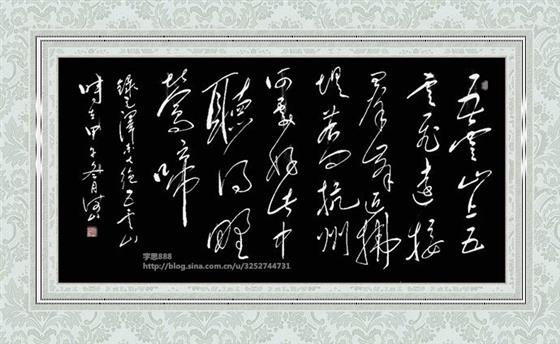 五云山上五
云飛遠接
群峰近拂
堤若问杭州
何處好此中
聽得野
鶯啼
錄毛澤东七絕五云山
時在甲午冬月
字思888
http://blog.sina.com.cn/u/3252744731